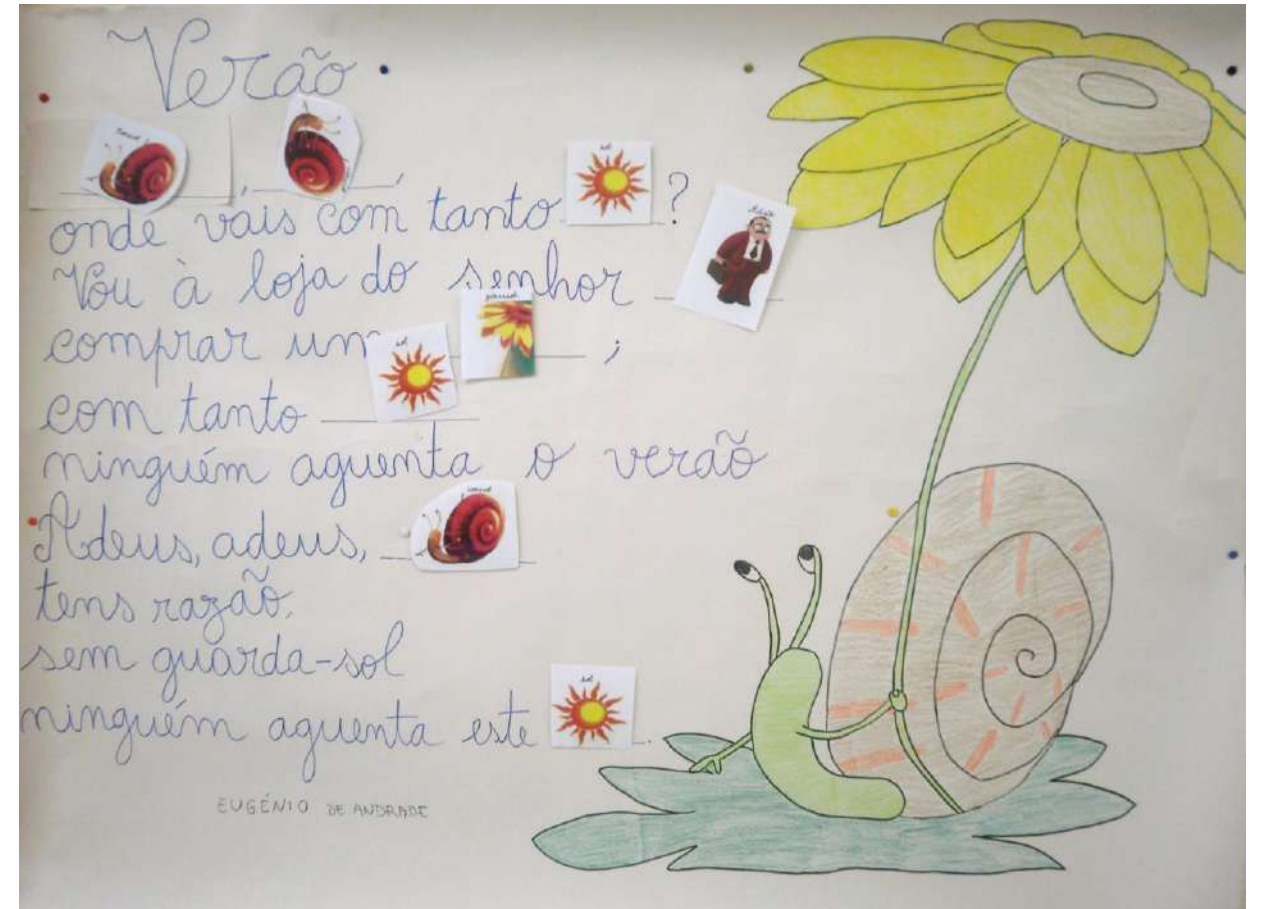 Verão
, ,
onde vais com tanto sol ?
Vou à loja do senhor
comprar um girassol ;
sol
com tanto
ninguém aguenta o verão
Adeus, adeus, caracol
tens razão,
sem guarda-sol
ninguém aguenta este sol .
EUGÉNIO DE ANDRADE